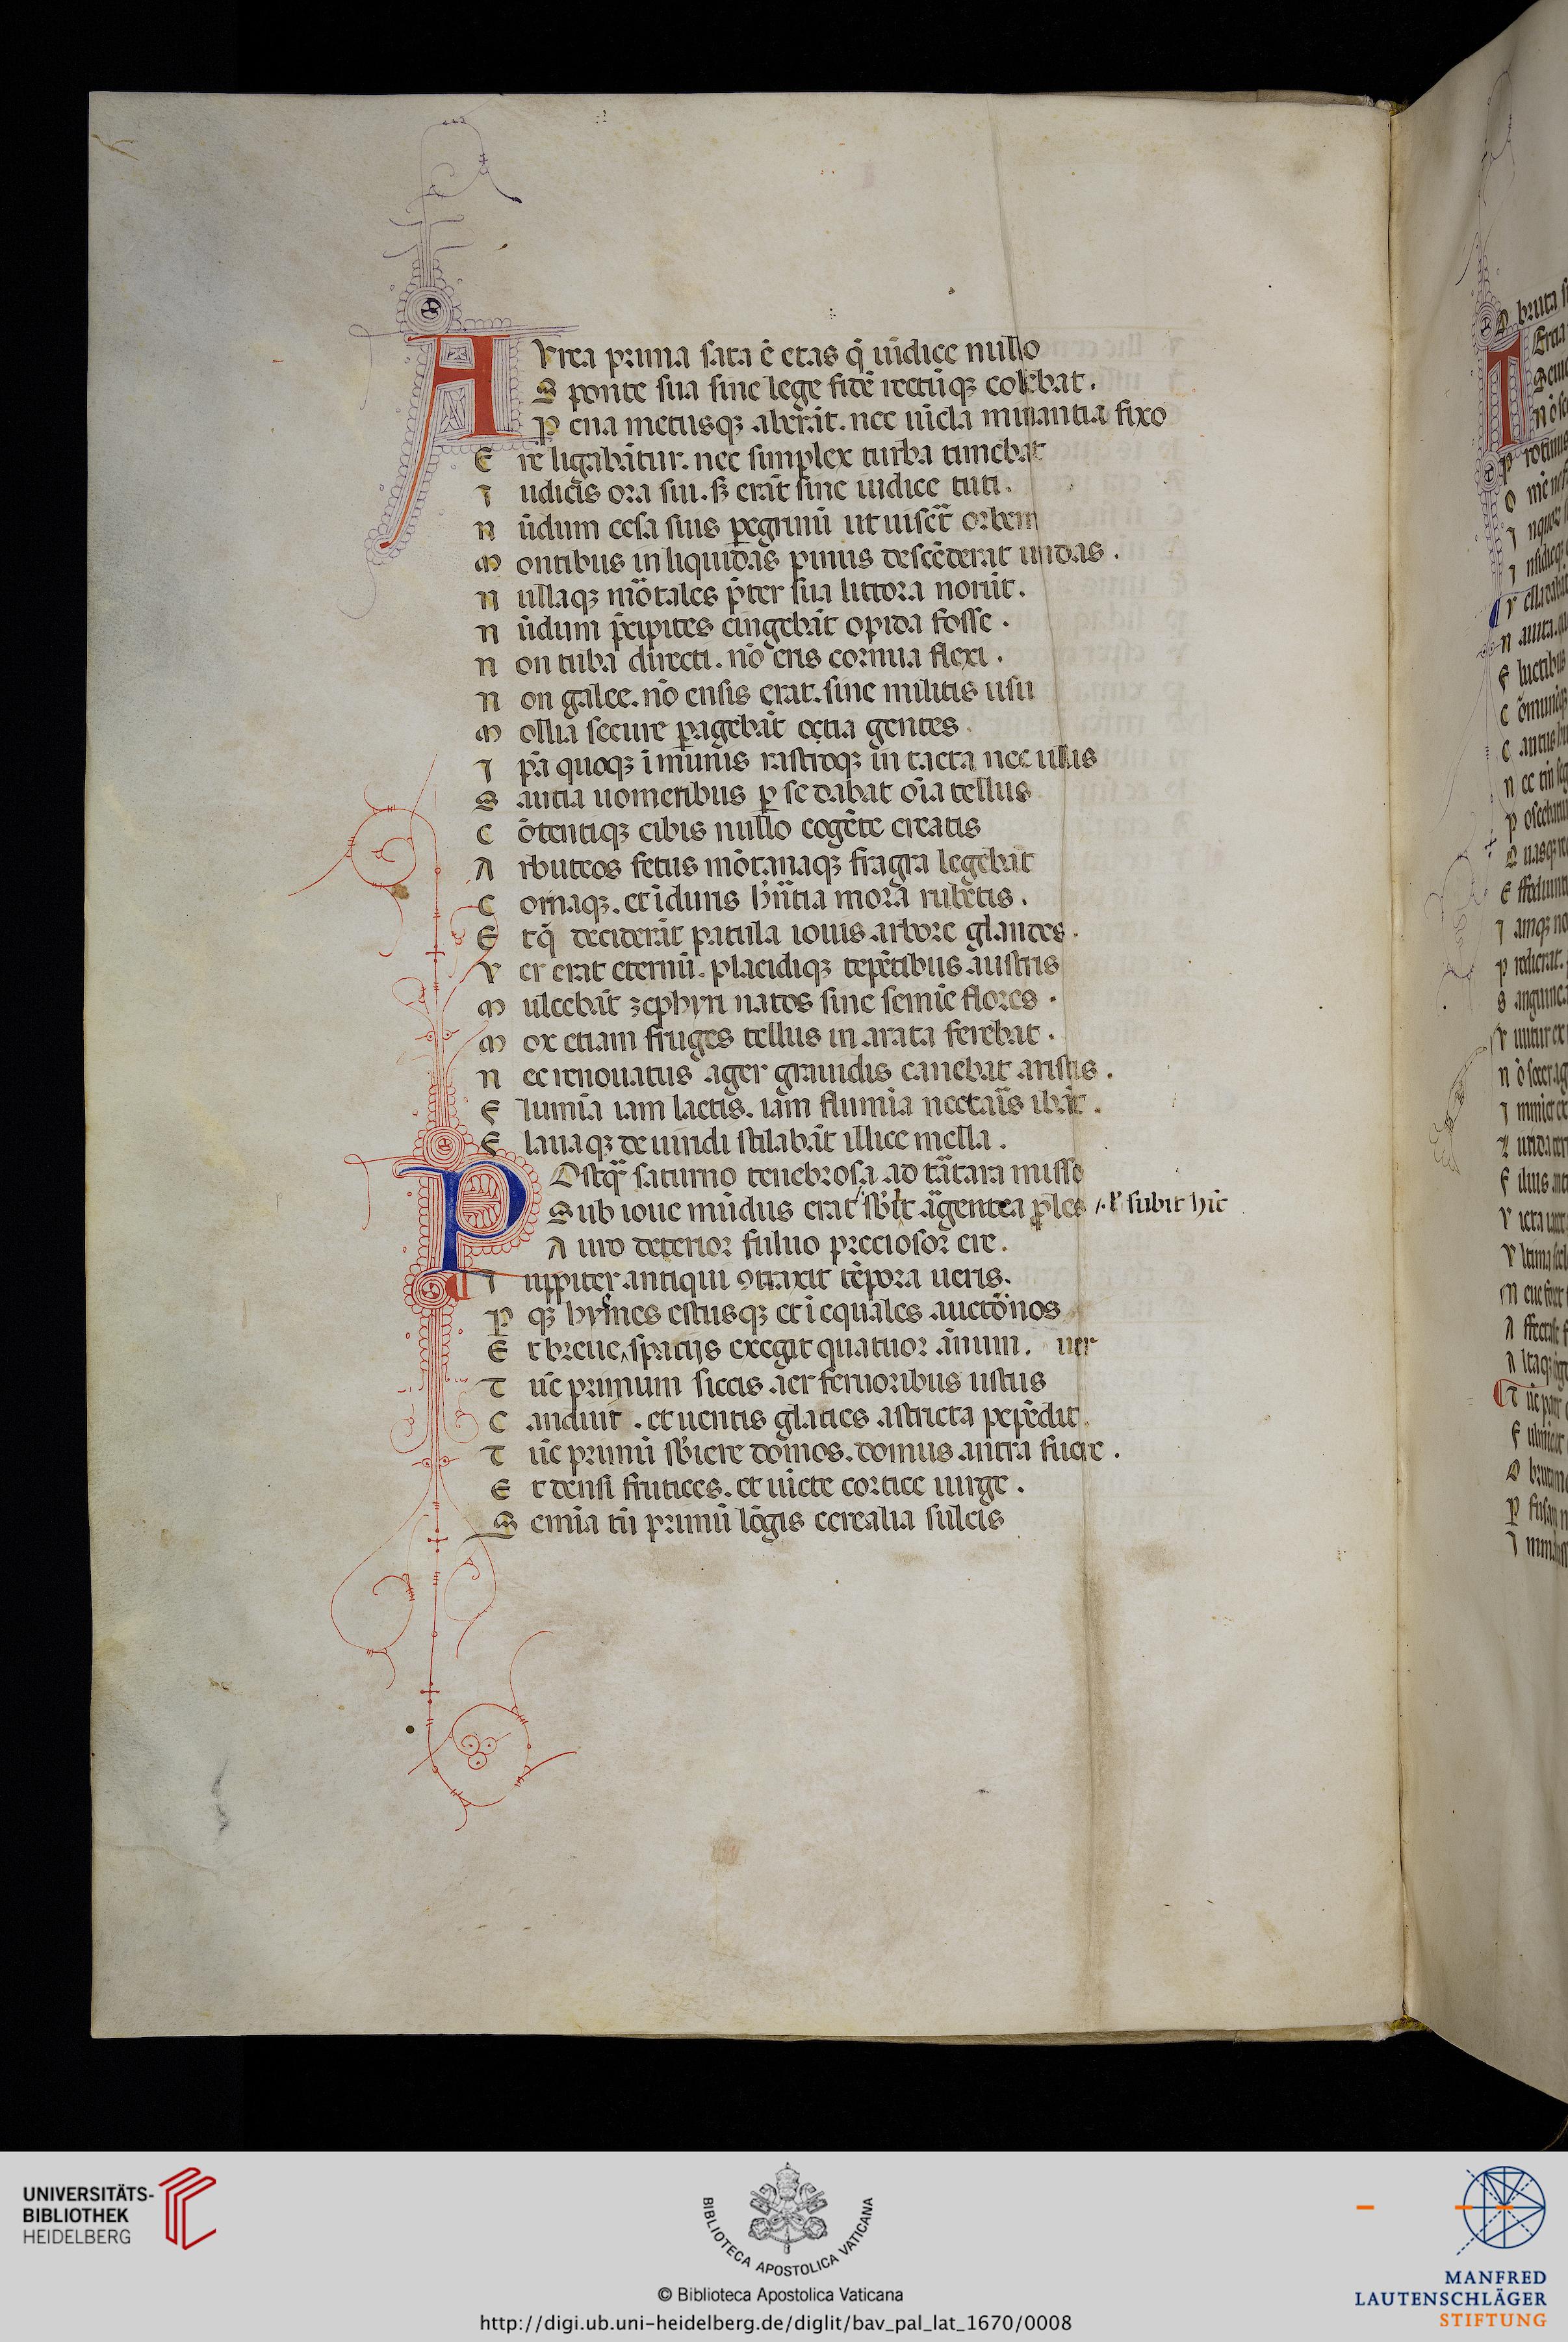 AVrea prima sata ē etas q̄ uīdice nullo
Sponte sua sine lege fidē rectūqꝫ colebat.
Pena metusqꝫ aberāt. nec uīcla minantia fixo
Ere ligabātur. nec simplex turba timebat
Iudicis ora sui. sꝫ erāt sine iudice tuti.
Nūdum cesa suis pegrinū ut uiseret orbem
Montibus in liquidas pinus descēderat undas.
Nullaqꝫ mortales p̄ter sua littora norūt.
Nūdum p̄cipites cingebāt opida fosse.
Non tuba directi. nō eris cornua flexi.
Non galee. nō ensis erat. sine militis usu
Mollia secure pagebāt octia gentes.
Ip̄a quoqꝫ īmunis rastroqꝫ in tacta nec ullis
Saucia uomeribus p se dabat oīa tellus
Cōtentiqꝫ cibis nullo cogēte creatis
Arbuteos fetus mōtanaqꝫ fragra legebāt
Cornaqꝫ. et ī duris h̄entia mora rubetis.
Et q̄ deciderāt patula iouis arbore glandes.
Ver erat eternū. placidiqꝫ tepētibus austris
Mulcebāt zephyri natos sine semīe flores.
Mox etiam fruges tellus in arata ferebat.
Nec renouatus ager grauidis canebat aristis.
Flumīa iam lactis. iam flumīa nectaīs ibāt.
Flauaqꝫ de uiridi stilabāt illice mella.
POstq̄ saturno tenebrosa ad tartara misso
Sub ioue mūdus erat sb̄iit argentea ples /. ł subit hīc
Auro deterior fuluo preciosor ere.
Iuppiter antiqui ꝯtraxit tēpora ueris.
Pqꝫ hyemes estusqꝫ et ī equales auctōnos
Et breue spacijs exegit quatuor ānum. uer
Tūc primum siccis aer feruoribus ustus
Canduit. et uentis glacies astricta pepēdit.
Tūc primū sb̄iere domos. domus antra fuere.
Et densi frutices. et uicte cortice uirge.
Semīa tū primū lōgis cerealia sulcis
UNIVERSITÄTS-
BIBLIOTHEK
HEIDELBERG
BIBLIOTECA APOSTOLICA VATICANA
© Biblioteca Apostolica Vaticana
http://digi.ub.uni-heidelberg.de/diglit/bav_pal_lat_1670/0008
MANFRED
LAUTENSCHLÄGER
STIFTUNG